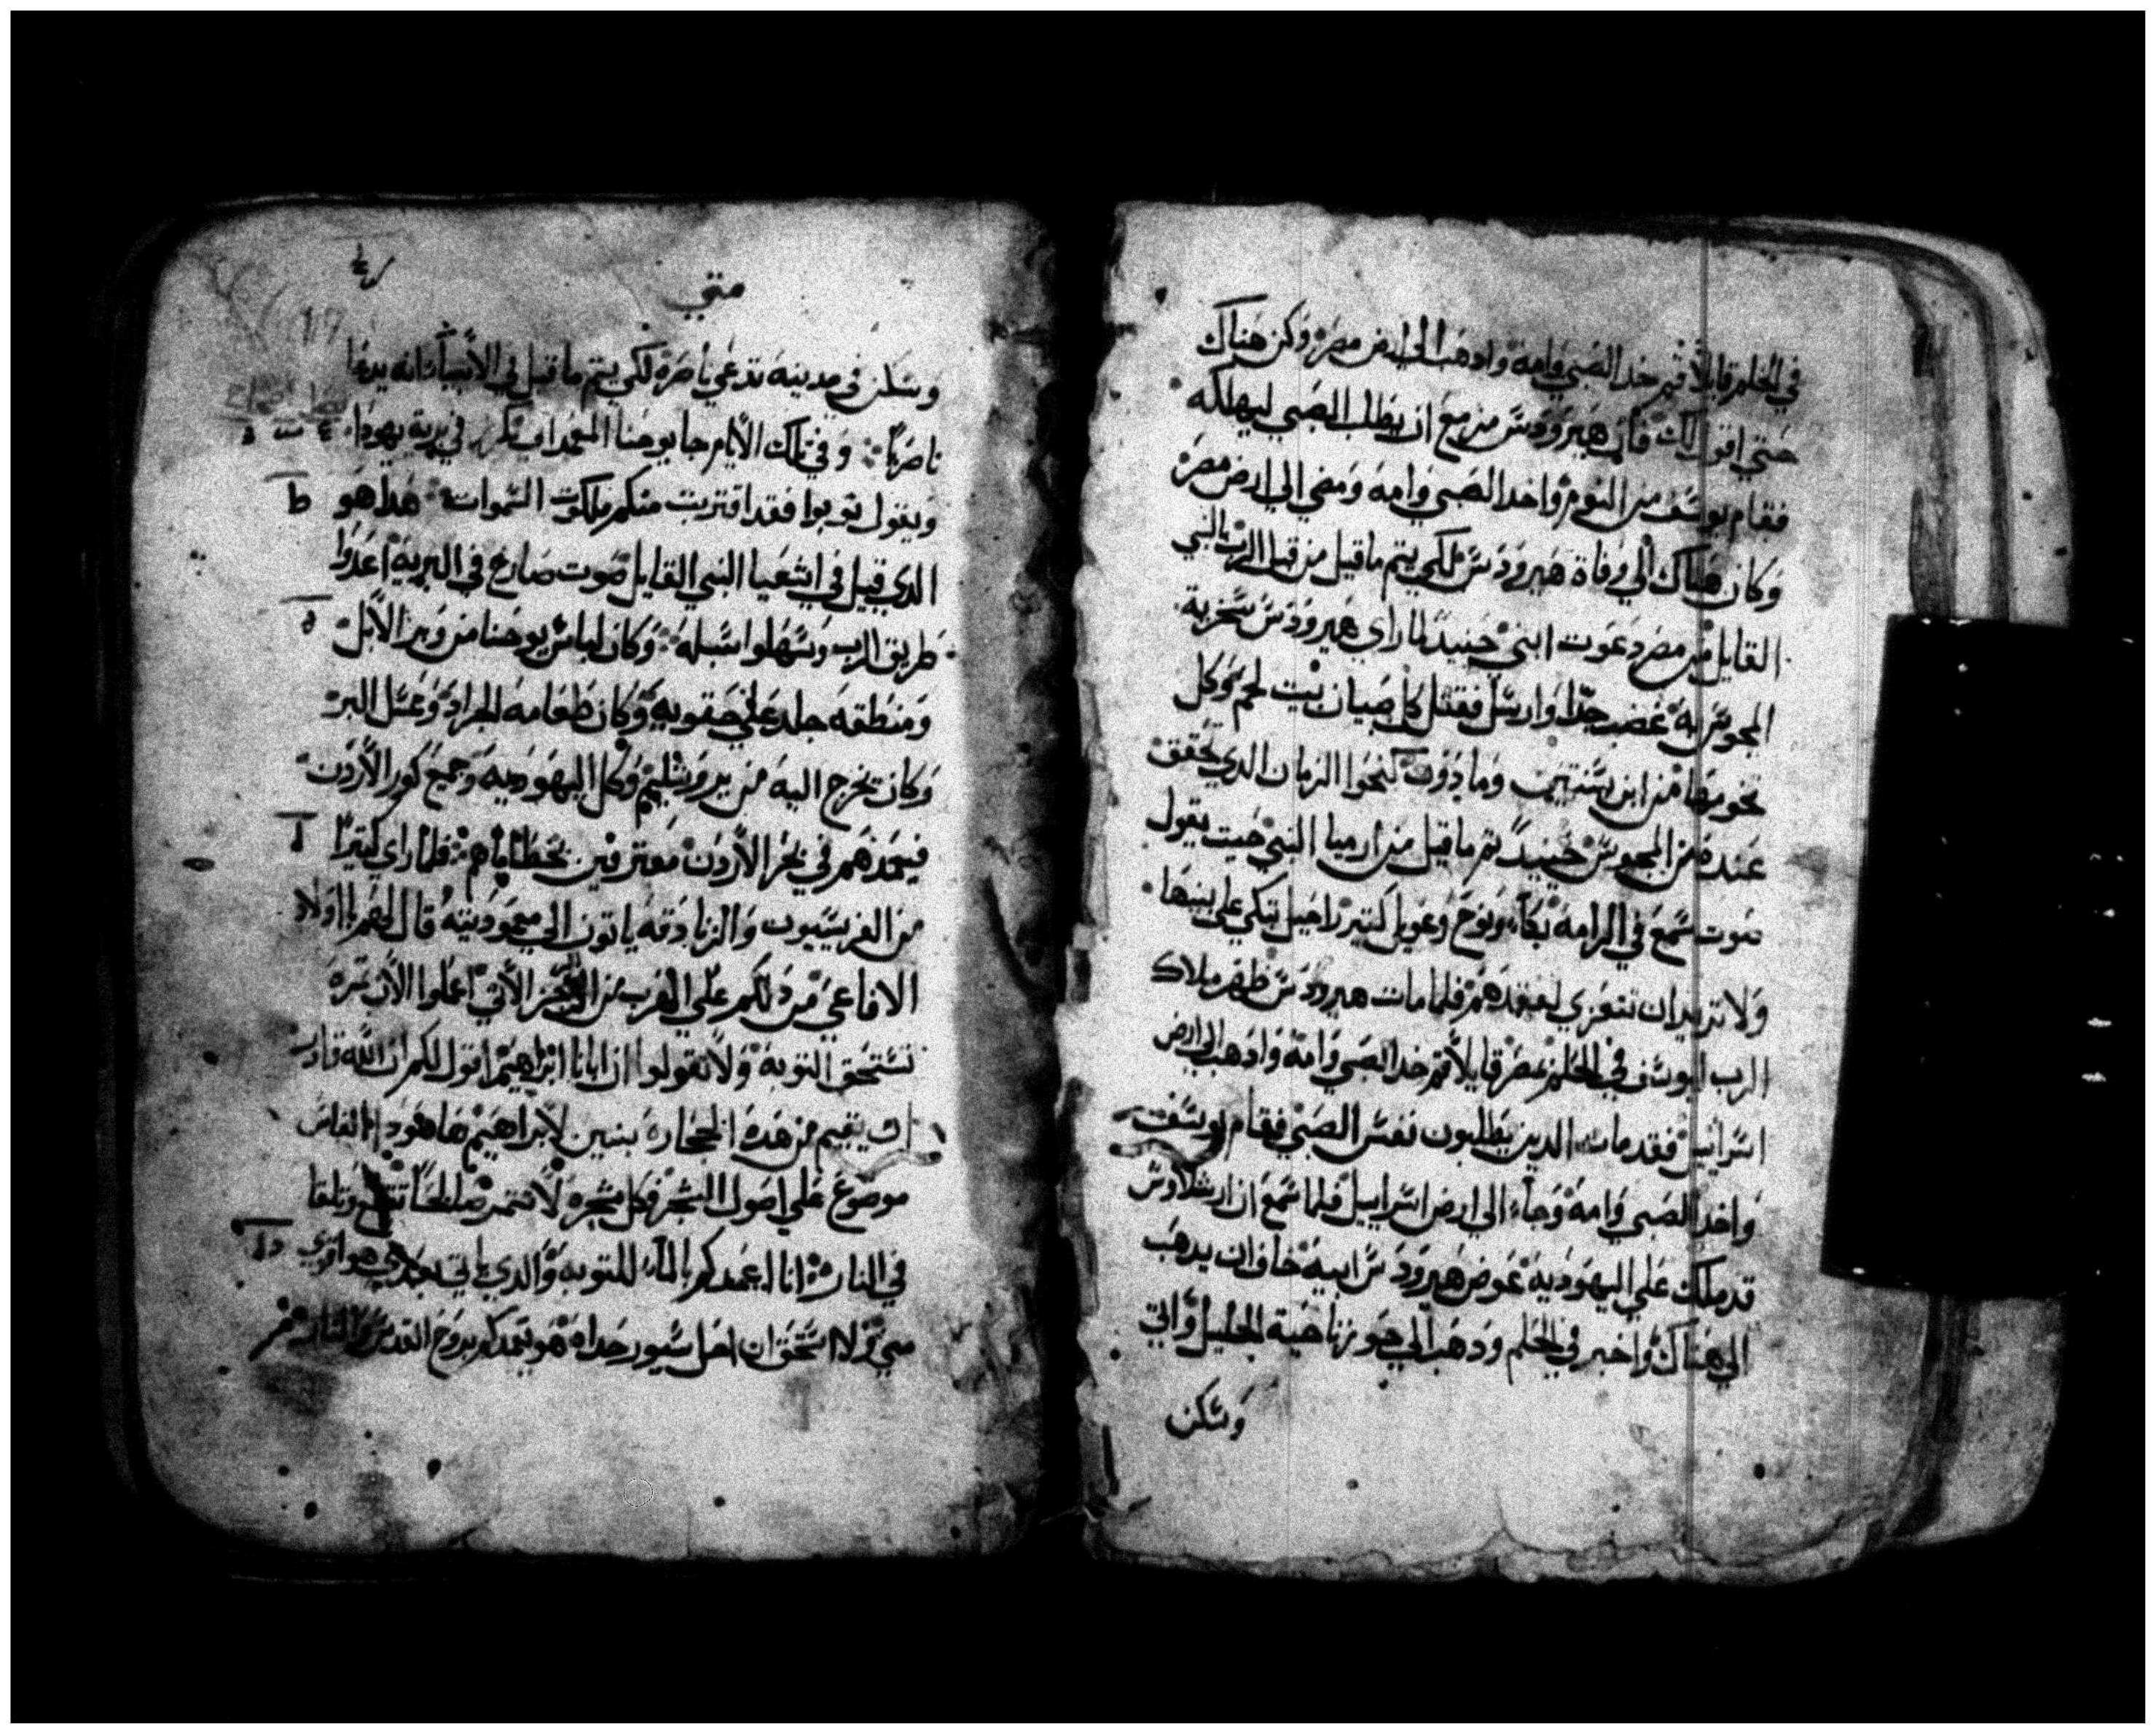 في الحلم قايلا قم خد الصبي وامه واذهب الي ارض مصر وكن هناك
حتي اقول لك فان هيرودس مزمع ان يطلب الصبي ليهلكه
فقام يوسف من النوم واخد الصبي وامه ومضي الي ارض مصر
وكان هناك الي وفاة هيرودس لكي يتم ما قيل من قبل الرب بالنبي
القايل من مصر دعوت ابني حينيد لما راي هيرودس سخرية
المجوس به غضب جدا وارسل فقتل كل صبيان بيت لحم وكل
تخومها من ابن سنتين وما دون كنحوا الزمان الدي تحقق
عنده من المجوس حينيد تم ما قيل من ارميا النبي حيت يقول
صوت سمع في الرامه بكاء ونوح وعويل كتير راحيل تبكي علي بنيها
ولا تريد ان تتعزي لفقدهم فلما مات هيرودس ظهر ملاك
الرب ليوسف في الحلم بمصر قايلا قم خد الصبي وامه وادهب الي ارض
اسرائيل فقد مات الدين يطلبون نفس الصبي فقام يوسف
واخد الصبي وامه وجاء الي ارض اسراييل فلما سمع ان ارشلاوش
قد ملك علي اليهوديه عوض هيرودس ابيه خاف ان يدهب
الي هناك واخبر في الحلم ودهب الي حوز ناحية الجليل واتي
وسكن
متي
17
وسكن في مدينه تدعي ناصره لكي يتم ما قيل في الانبياء انه يدعا
ناصريا وفي تلك الايام جا يوحنا المعمدان يكرز في برية يهودا
ويقول توبوا فقد اقتربت منكم ملكوت السموات هدا هو
الدي قيل في اشعيا النبي القايل صوت صارخ في البرية اعدوا
طريق الرب وسهلوا سبله وكان لباس يوحنا من وبر الابل
ومنطقه جلد علي حقويه وكان طعامه الجراد وعسل البر
وكان يخرج اليه من يروشليم وكل اليهوديه وجميع كور الاردن
فيعمدهم في نهر الاردن معترفين بخطاياهم فلما راي كتيرا
من الفريسيون والزنادقه ياتون الي معموديته قال لهم يا اولاد
الافاعي من دلكم علي الهرب من الرجز الاتي اعملوا الان تمرة
تستحق التوبة ولا تقولوا ان ابانا ابراهيم اقول لكم ان الله قادر
ان يقيم من هده الحجاره بنين لابراهيم ها هودا الفاس
موضوع علي اصول الشجر فكل شجره لا تتمر صالحا تقطع وتلقا
في النار انا اعمدكم بالماء للتوبه والدي ياتي بعدي هو اقوي
مني ولا استحق ان احل سيور حداه هو يعمدكم بروح القدس والنار